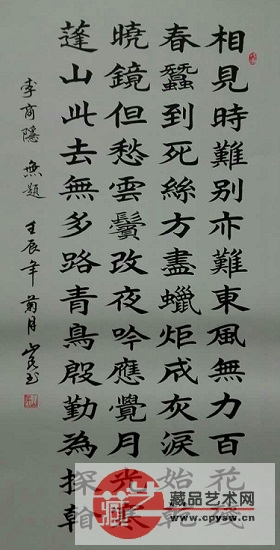 相見時難别亦難東風無力百花殘
春蠶到死絲方盡蠟炬成灰淚始乾
曉鏡但愁雲鬢改夜吟應覺月光寒
蓬山此去無多路青鳥殷勤為探
李商隱 無題 壬辰年菊月
藏品艺术网
www.cpysw.cn